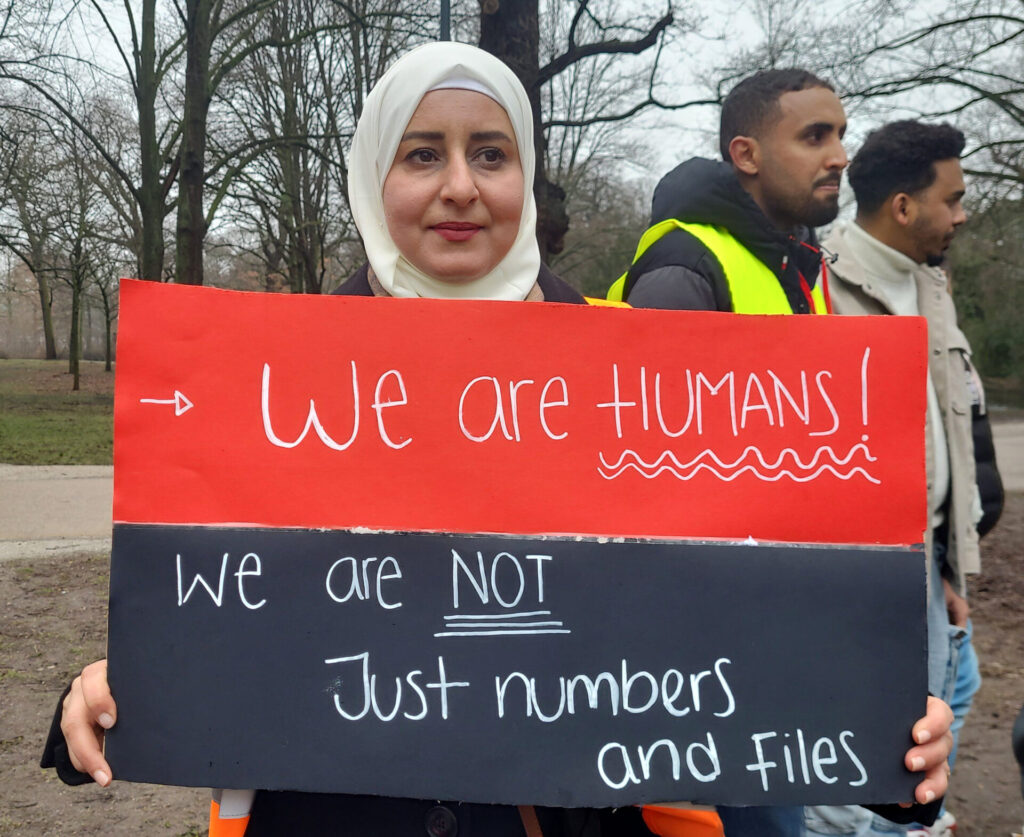 → We are HUMANS!
We are NOT
Just numbers
and files